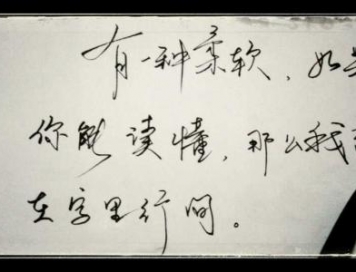 有一种柔软，如
你能读懂，那么我
在字里行间。